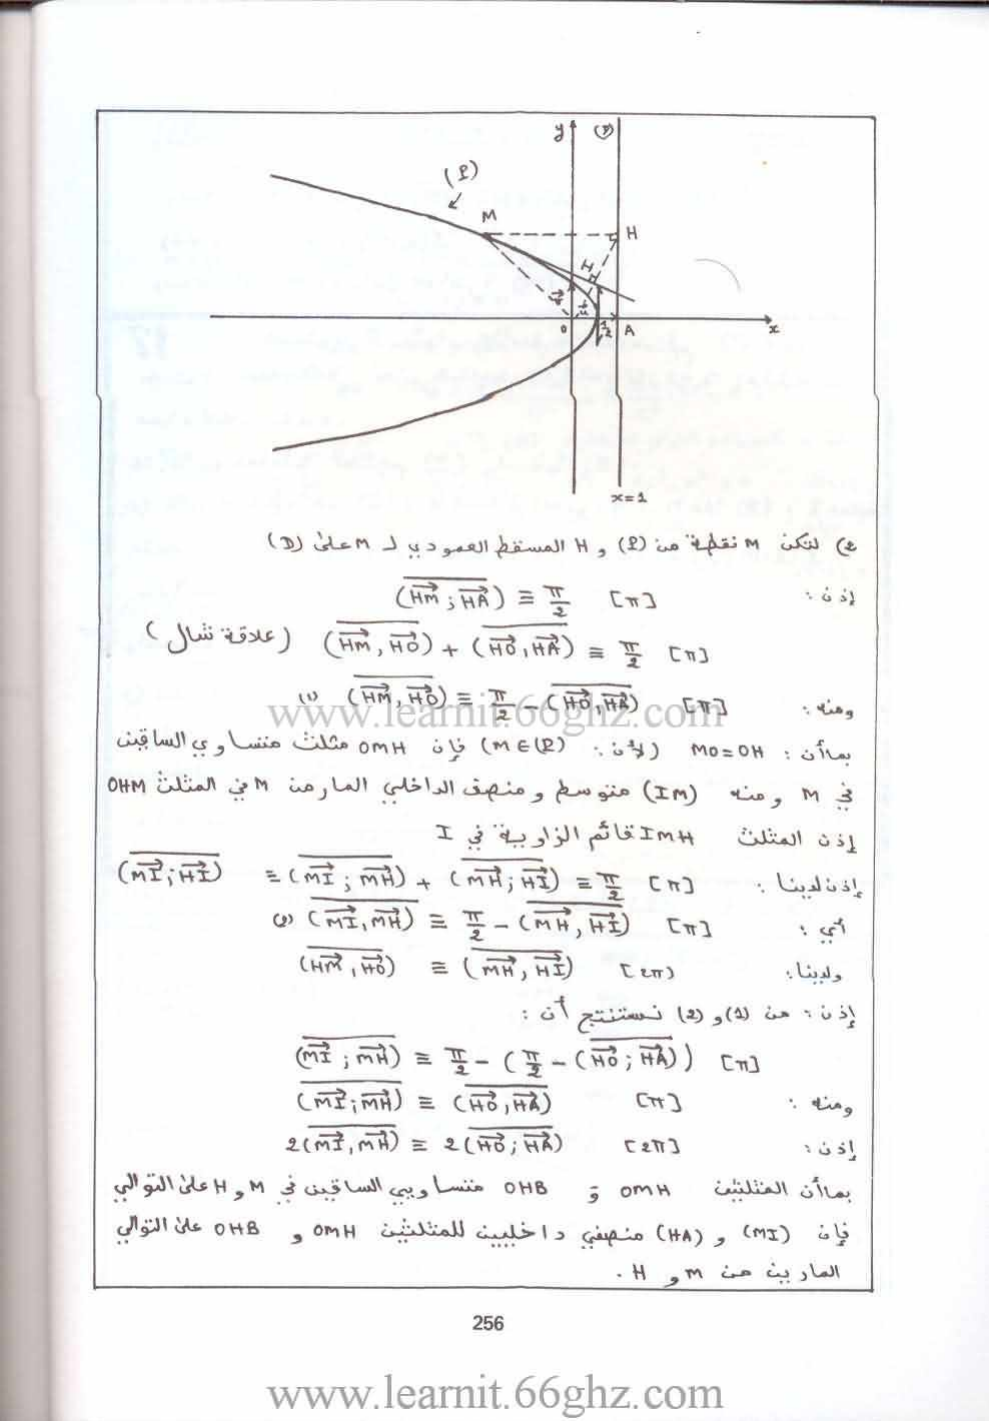 y (D)
(P)
M
H
H
O 1/2 A x
x=1
2) لتكن M نقطة من (P) و H المسقط العمودي لـ M على (D)
إذن : (HM ; HA) ≡ π/2 [π]
(HM , HO) + (HO , HA) ≡ π/2 [π] (علاقة شال)
ومنه : (HM , HO) ≡ π/2 - (HO , HA) [π] (1)
بما أن : MO=OH (لأن : M∈(P)) فإن OMH مثلث متساوي الساقين
في M ومنه (IM) متوسط و منصف الداخلي المار من M في المثلث OHM
إذن المثلث IMH قائم الزاوية في I
إذن لدينا : (MI ; HI) ≡ (MI ; MH) + (MH ; HI) ≡ π/2 [π]
أي : (MI , MH) ≡ π/2 - (MH , HI) [π] (2)
ولدينا : (HM , HO) ≡ (MH , HI) [2π)
إذن : من (1) و (2) نستنتج أن :
(MI ; MH) ≡ π/2 - (π/2 - (HO ; HA)) [π]
ومنه : (MI ; MH) ≡ (HO , HA) [π]
إذن : 2(MI , MH) ≡ 2(HO ; HA) [2π]
بما أن المثلثين OMH و OHB متساويي الساقين في M و H على التوالي
فإن (MI) و (HA) منصفي داخليين للمثلثين OMH و OHB على التوالي
المارين من M و H .
256
www.learnit.66ghz.com
www.learnit.66ghz.com